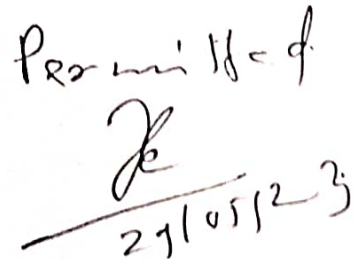 Permitted
29/05/23